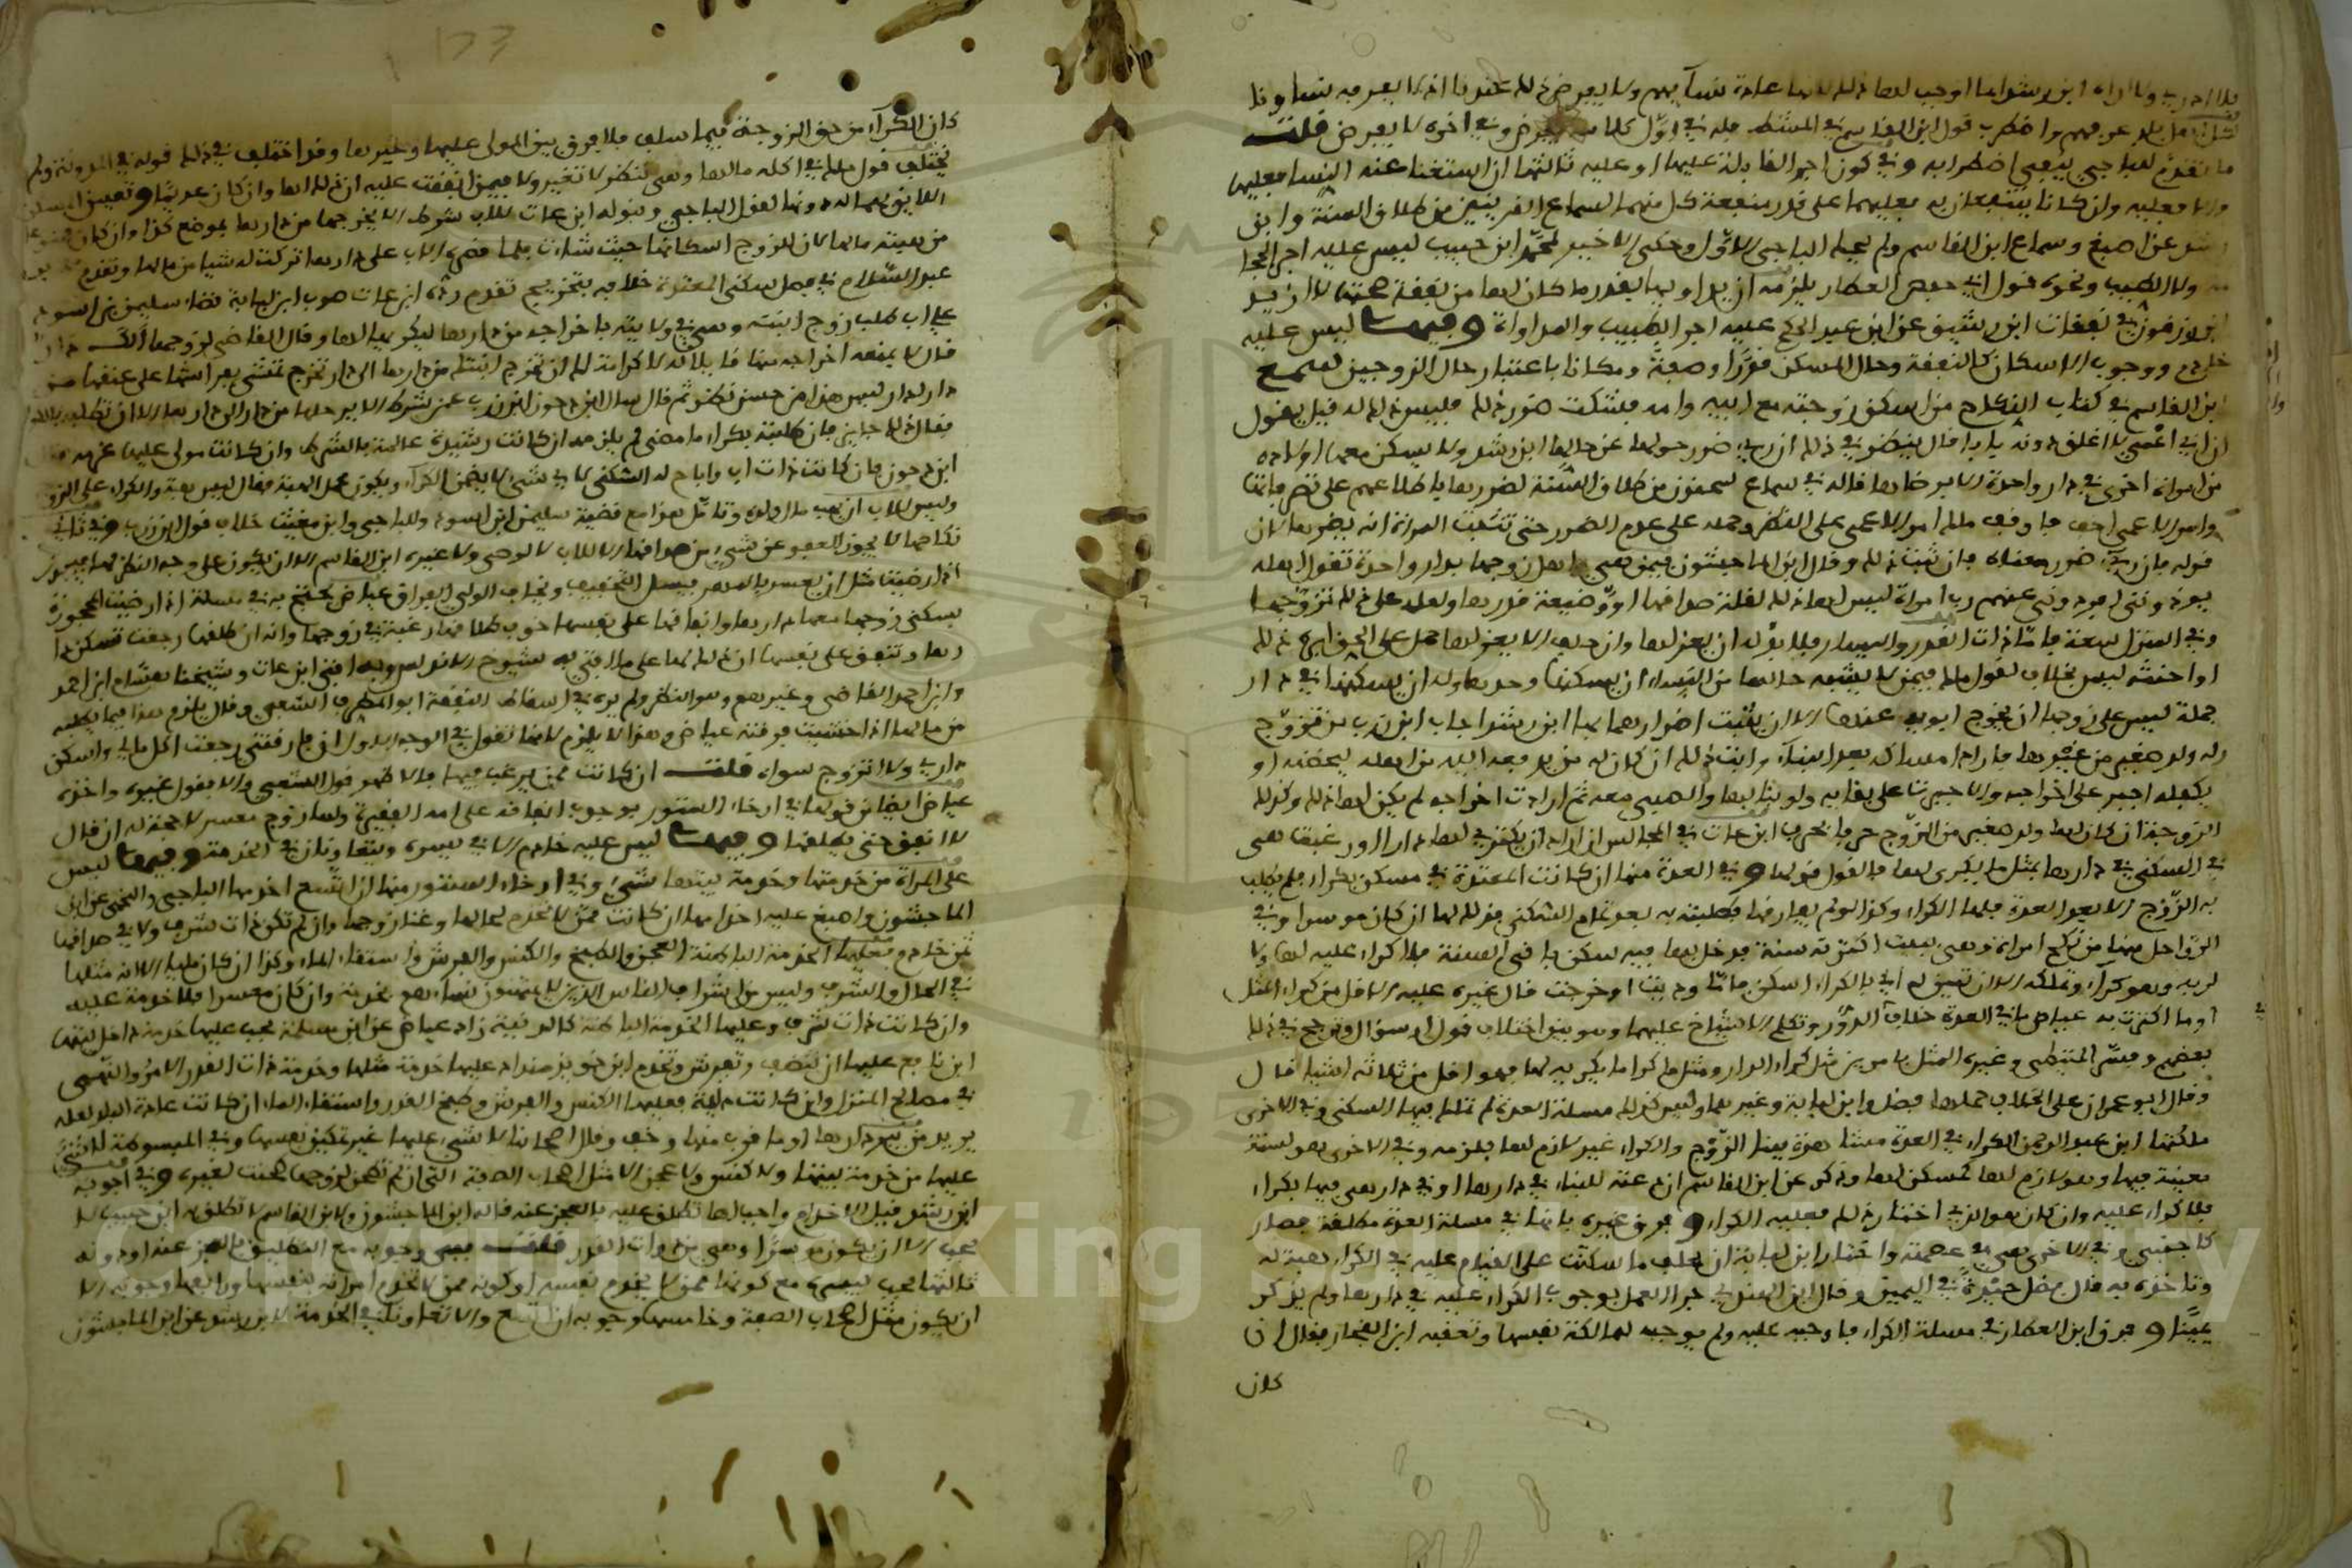 فلا ادري ولا اراه ابن رشد انما اوجب لها ذلك لانها عادة نسائهم ولا يفرض ذلك عندنا اذ لا يعرفه نساونا
ما تقدم للباجي ينفي اضطرابه وفي كون اجر القابلة عليها او عليه ثالثها ان استغنا عنه النسا فعليها
والا فعليه وان كانا ينتفعان به فعليهما على قدر منفعة كل منهما لسماع القرينين من طلاق السنة وابن
رشد عن اصبغ وسماع ابن القاسم ولم يحك الباجي الاول وحكى الاخير لمحمد ابن حبيب ليس عليه اجر الحجا
مة ولا الطبيب ونحوه قول ابي حفص العطار يلزمه ان يداويها بقدر ما كان لها من نفقة صحتها لا ازيد
ابن زرقون في نفقات ابن رشيق عن ابن عبد الحكم عليه اجر الطبيب والمداواة وفيها ليس عليه
خادم ووجوب الاسكان كالنفقة وحال المسكن قدرا وصفة ومكانا باعتبار حال الزوجين لسمع
ابن القاسم في كتاب النكاح من اسكن زوجته مع ابيه وامه فشكت ضرر ذلك فليس ذلك له قيل يقول
ان ابي اعمى لا اغلق دونه بابا قال ينظر في ذلك ان ريء ضرر حولها عن حالها ابن رشد ولا يسكن معها اولاده
من امراة اخرى في دار واحدة الا برضاها قاله في سماع سحنون من طلاق السنة لضررها باطلاعهم على
وامر الاعمى اخف ما وقف مالك امر الاعمى على النظر وحمله على عدم الضرر حتى تثبت المراة انه يضر بها لان
قوله فان ريء ضرر معناه فان ثبت ذلك وقال ابن الماجشون فيمن هي واهل زوجها بدار واحدة تقول اهله
يوذونني لفرد ونبي عنهم رب امراة ليس لها ذلك لقلة صداقها او وضيعة قدرها ولعله على ذلك تزوجها
وفي المنزل سعة فاما ذات القدر واليسار فلا بد له ان يعزلها وان حلف الا يعزلها حمل على الحق ابن
او احنثه ليس بخلاف لقول مالك فيمن لا يشبه حالها من النساء ان يسكنها وحدها وله ان يسكنها في دار
جملة ليس على زوجها ان يخرج ابويه عنها الا ان يثبت اضرارهما بها ابن رشد اجاب ابن زرب من تزوج
وله ولد صغير من غيرها فاراد امساكه بعد البناء وابت ذلك ان كان له من يدفعه اليه من اهله ليحضنه او
يكفله اجبر على اخراجه والا جبرت على بقائه ولو بنا بها والصبي معه ثم ارادت اخراجه لم يكن لها ذلك وكذلك
الزوجة ان كان لها ولد صغير مع الزوج حرفا بحرف ابن عات في المجالس ان اراد ان يكتري لها دارا ورغبت هي
في السكنى في دارها بمثل ما يكري لها فالقول قولها وفي العدة منها ان كانت المعتدة في مسكن بكراء فلم يطلب
به الزوج الا بعد العدة فلها الكراء وكذا لو لم يفارقها فطلبته به بعد تمام السكنى فذلك لها ان كان موسرا وفي
الرواحل منها من نكح امراة وهي ببيت اكترته سنة فدخل بها فيه سكن باقي السنة فلا كراء عليه لها ولا
لربه وهو كراء وتملكه الا ان تبين له اني بالكراء اسكن فاما وديت او خرجت قال غيره عليه الاقل من كراء المثل
او ما اكترت به عياض ما في العدة خلاف الدور وتكلم الاشياخ عليهما وهو بين اختلاف قول او سؤال وترجح في ذلك
بعضهم وفسر المتيطي وغيره المثل بالامرين مثل كراء الدار ومثل ما كرا ما يكريه لها فهو اقل من ثلاثة اشيا قال
وقال ابو عمران على الخلاف حملاها فضل وابن لبابة وغيرهما وليس كذلك مسئلة العدة لم تملك فيها السكنى وفي الاخرى
ملكتها ابن عبد الرحمن الكراء في العدة مشاهرة بينا الزوج والكراء غير لازم لها فلزمه وفي الاخرى هو لسنة
بعينة فيها وهو لازم لها لمسكن لها وذكر عن ابن القاسم ان دعته للبناء في دارها او في دار هي فيها بكراء
فلا كراء عليه وان كان هو الذي اختار ذلك فعليه الكراء وفرق غيره بانها في مسئلة العدة مطلقة فصار
كاجنبي وفي الاخرى هي في عصمته واختار ابن لبابة ان يحلف ما سكتت على القيام عليه في الكراء هبة له
وتاخذه به قال فضل حيرة في اليمين وقال ابن الهندي جرا العمل بوجوب الكراء عليه في دارها ولم يذكر
يمينا وفرق ابن العطار في مسئلة الكراء فاوجبه عليه ولم يوجبه لمالكة نفسها وتعقبه ابن الفخار فقال ان
كان
كان الكراء من حق الزوجة فيما سلف فلا فرق بين المولى عليها وغيرها وقد اختلف في ذلك قوله في المدونة ولم
يختلف قول مالك في اكله مالها وهي تنظر لا تغير ولا فيمن انفقت عليه ان ذلك لها وان كان عديما وتعيين المسكن
اللايق بهما له دونها لقول الباجي وقوله ابن عات للاب شرط الا يخرجها من دارها بموضع كذا وان كان
من هبته مالها كان للزوج اسكانها حيث شاءت
عبد السلام في فصل سكنى المعتدة خلافه بتخريج تقدم رده ابن عات صوب ابن لبابة قضاء سليمن بن اسود
على اب طلب زوج ابنته وهي في ولايته باخراجه من دارها ليكريها لها وقال القاضي لزوجها الك دار
قال لا يمنعه اخراجه منها قائلا له لا كرامة لك ان تخرج ابنتك من دارها الى دار تخرج تمشي بفراشها على عنقها من
دار لدار ليس هذا من حسن نظر ثم قال سال ابن دحون ابن زرب عمن شرط الا يرحلها من دار الى دارها الا ان تطلبه بالكراء
فقال ذلك جايز فان طلبته بكراء ما مضى لم يلزمه ان كانت رشيدة عالمة بالشرط وان كانت مولى عليها غرمه
ابن دحون فان كانت ذات اب واباح له السكنى لا بشيء لا يضمن الكراء ويكون محمل الهبة فقال ليس هبة والكراء على الزوج
وليس للاب ان يهب مال ولده وتامل هذا مع قضية سليمن ابن اسود وللباجي وابن مغيث خلاف قول ابن زرب وفي ثاني
نكاحها لا يجوز العفو عن شيء من صداقها الا للاب لا لوصي ولا غيره ابن القاسم الا ان يكون على وجه النظر لها فيجوز
اذا رضيت مثل ان يعسر بالمهر فيسل التخفيف ويخاف الولي الفراق عياض يحتج به في مسئلة اذا رضيت المحجورة
بسكنى زوجها معها دارها وانفاقها على نفسها خوف طلاقها رغبة في زوجها وانه ان طلقها رجعت تسكن دا
رها وتنفق على نفسها ان ذلك لها على ما افتى به شيوخ الاندلس وبه افتى ابن عات وشيخنا هشام ابن احمد
وابن احمد القاضي وغيرهم وهو النظر ولم يره في اسقاط النفقة ابو المطرف الشعبي وقال يلزم هذا فيما يطلبه
من مالها اذا خشيت فرقته عياض وهذا لا يلزم لانها تقول في الوجه الاول ان فارقني رجعت اكل مالي واسكن
داري ولا اتزوج سواه قلت ان كانت ممن يرغب فيها فالاظهر قول الشعبي والا فقول غيره واخذه
عياض ايضا من قولها في ارخاء الستور بوجوب انفاقه على امه الفقيرة ولها زوج معسر لا حجة له ان قال
لا انفق حتى يطلقها وفيها ليس عليه خادم الا في يسره ويتعاونان في الخدمة وفيها ليس
على المراة من خدمتها وخدمة بيتها شيء وفي ارخاء الستور منها ان اتسع اخدمها الباجي واللخمي عن ابن
الماجشون واصبغ عليه اخدامها ان كانت ممن لا تخدم لحالها وغنا زوجها وان لم تكن ذات شرف ولا في صداقها
ثمن خادم فعليها الخدمة الباطنة العجن والطبخ والكنس والفرش واستقاء الماء وكذا ان كان مليا الا انه مثلها
في الحال والشرف وليس من اشراف الناس الذين لا يمتهنون نساءهم بخدمة وان كان معسرا فلا خدمة عليه
وان كانت ذات شرف وعليها الخدمة الباطنة كالدنية زاد عياض عن ابن مسلمة يجب عليها خدمة داخل بيتها
ابن نافع عليها ان تنصب وتفرش وتخدم ابن خويز منداد عليها خدمة مثلها وخدمة ذات القدر الامر والنهي
في مصالح المنزل وان كانت دنية فعليها الكنس والفرش وطبخ القدر واستقاء الماء ان كانت عادة البلد لعله
يريد من بئر دارها او ما قرب منها وخف وقال اصحابنا لا شيء عليها غير تمكين نفسها وفي المبسوطة لا شيء
عليها من خدمة بيتها ولا كنس ولا عجن الا مثل اصحاب الصفة التي ان لم تطحن لزوجها طحنت لغيره وفي اجوبة
ابن رشد قيل الاخدام واجب لها تطلق عليه بالعجز عنه قاله ابن الماجشون ولابن القاسم لا تطلق به ابن حبيب لا
يجب الا ان يكون موسرا وهي من ذوات القدر قلت ففي وجوبه مع التطليق بالعجز عنه او دونه
ثالثها يجب بيسره مع كونها ممن لا يخدم نفسه او كونه ممن لا تخدم امراته نفسها ورابعها وجوبه الا
ان يكون مثل اصحاب الصفة وخامسها وجوبه ان اتسع والا تعاونا في الخدمة لابن رشد عن ابن الماجشون